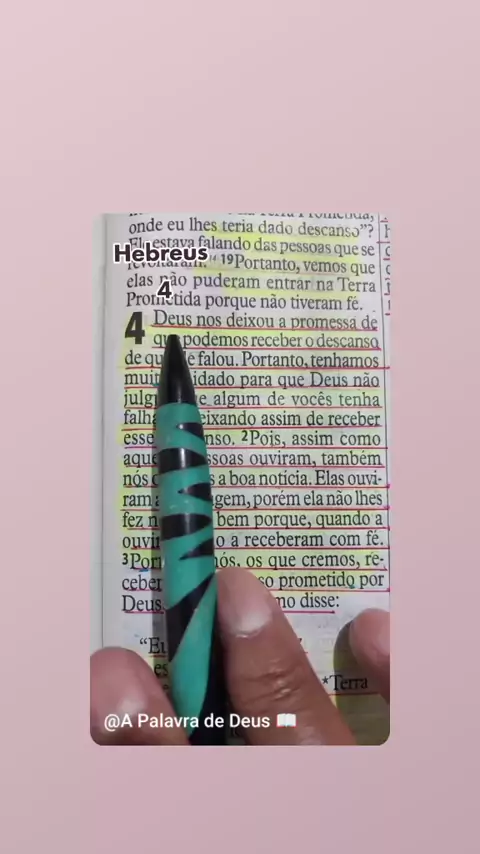 onde eu lhes teria dado descanso"?
Ele estava falando das pessoas que se
Hebreus
revoltaram." ¹⁹Portanto, vemos que
elas não puderam entrar na Terra
4
Prometida porque não tiveram fé.
4 Deus nos deixou a promessa de
que podemos receber o descanso
de que falou. Portanto, tenhamos
muito cuidado para que Deus não
algum de vocês tenha
assim de receber
esse ²Pois, assim como
também
nós a boa notícia. Elas ouvi-
porém ela não lhes
fez bem porque, quando a
a receberam com fé.
³ nós, os que cremos, re-
prometido por
Deus, disse:
“Eu
*Terra
@A Palavra de Deus 📖